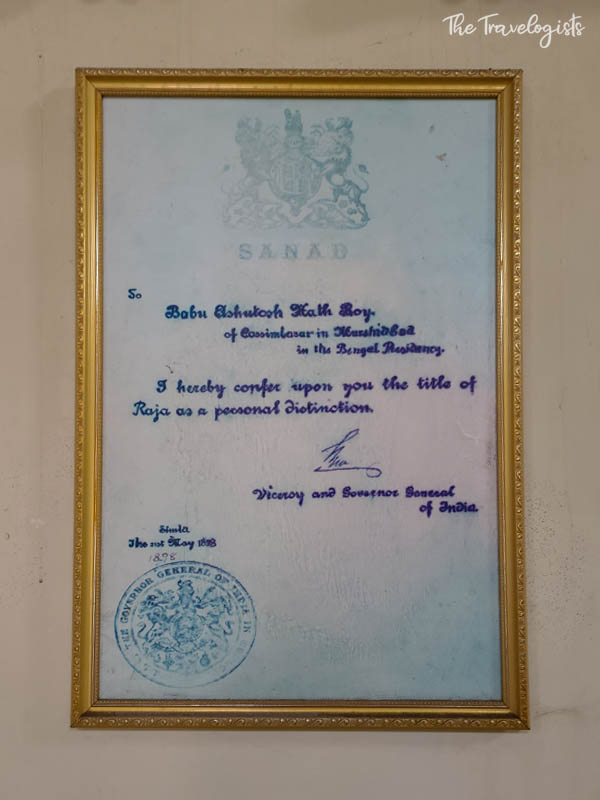 The Travelogists
SANAD
To
Babu Ashutosh Nath Roy.
of Cossimbazar in Murshidabad
in the Bengal Presidency.
I hereby confer upon you the title of
Raja as a personal distinction.
Viceroy and Governor General
of India.
Simla
The 21st May 1898
1898
THE GOVERNOR GENERAL OF INDIA IN